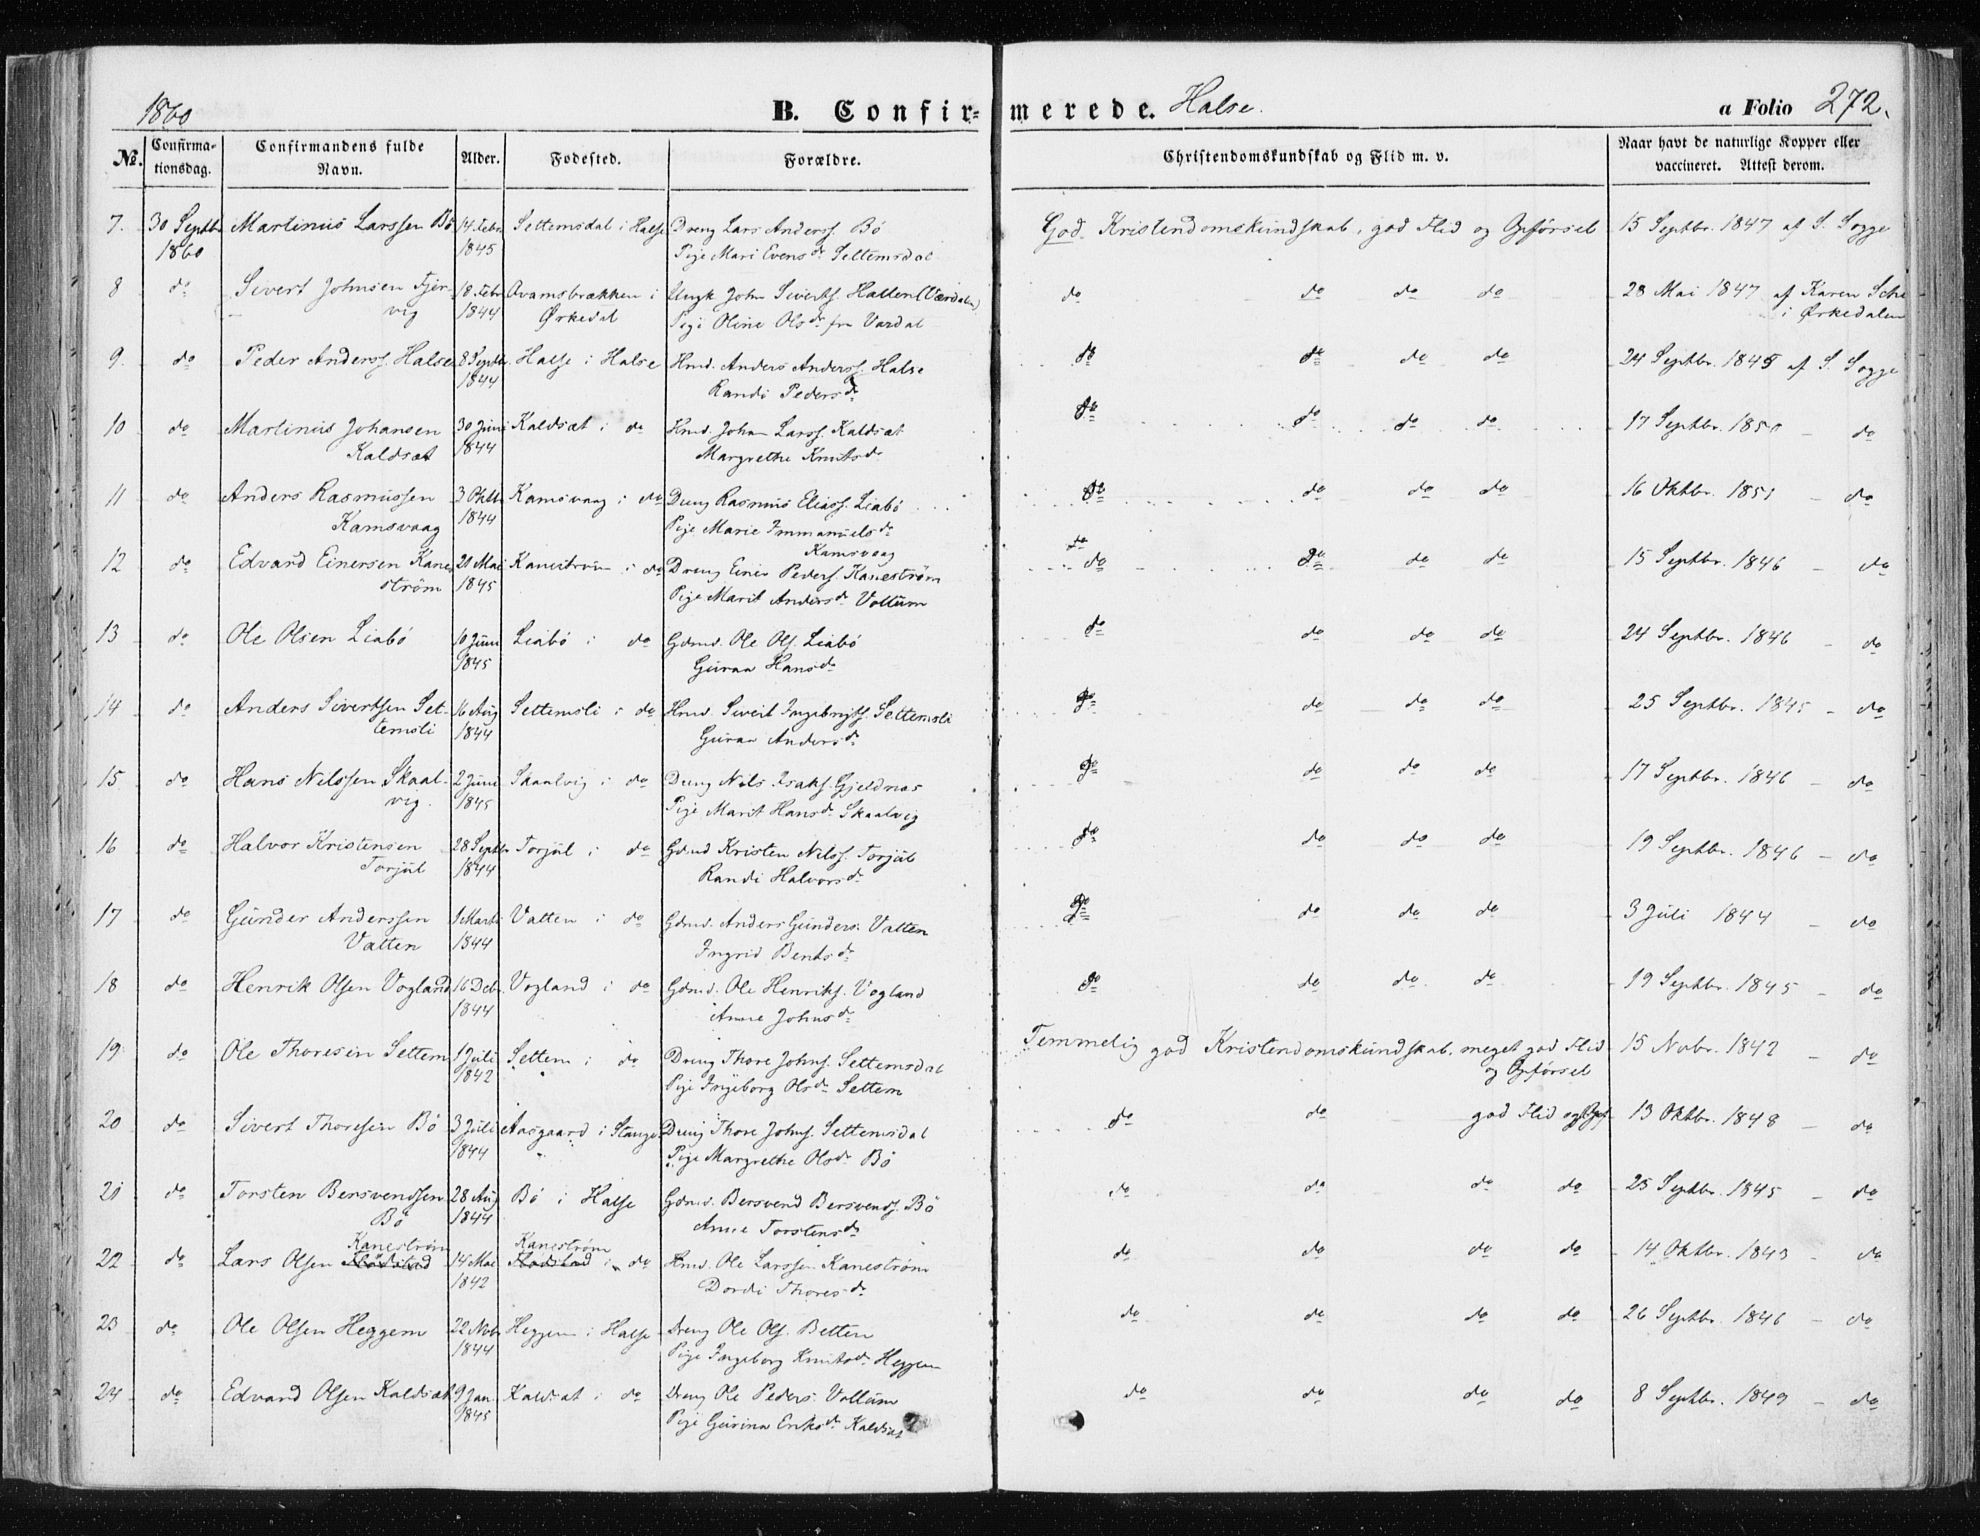 1860 B. Confirmerede. Halse. a Folio 272.
№. Confirmationsdag. Confirmandens fulde Navn. Alder. Fødested. Forældre. Christendomskundskab og Flid m. v. Naar havt de naturlige Kopper eller vaccineret. Attest derom.
7. 30 Septbr Martinus Larssen Bö 14 Febr Settemsdal i Halse Dreng Lars Anderss. Bö God Kristendomskundskab, god Flid og Opförsel 15 Septbr. 1847 af S. Sogge
1860 1845 Pige Mari Evensdr Settemsdal
8 do Sivert Johnsen Fjer- 18 Febr i Ungk. John Siverts. Hallen (Værdalen) do do do do 28 Mai 1847 af Karen
vig 1844 Ørkedal Pige Oline Olsdr fra Vardal i Ørkedalen
9. do Peder Anderss. Halse 8 Septbr. Halse i Halse Hmd. Anders Anderss. Halse do do do do 24 Septbr. 1845 af S. Sogge
1844 Randi Pedersdr
10 do Martinus Johansen 30 Juni Kaldsæt i do Hmd. Johan Larss. Kaldsæt do do do do 17 Septbr. 1850 - do
Kaldsæt 1844 Margrethe Knutsdr
11 do Anders Rasmussen 3 Oktbr Kamsvaag i do Dreng Rasmus Eliass. Liabö do do do do 16 Oktbr. 1851 - do
Kamsvaag 1844 Pige Marie Immanuelsdr
Kamsvaag
12 do Edvard Einersen Kane- 20 Mai Kaneström i do Dreng Einer Peders. Kaneström do do do do 15 Septbr. 1846 - do
ström 1845 Pige Marit Andersdr Vollum
13 do Ole Olsen Liabö 10 Juni Liabö i do Gdmd. Ole Ols. Liabö do do do do 24 Septbr. 1846 - do
1845 Guraa Hansdr
14 do Anders Sivertsen Set- 16 Aug Settemsli i do Hmd. Sivert Ingebrigts. Settemsli do do do do 25 Septbr. 1845 - do
temsli 1844 Guraa Andersdr
15 do Hans Nilssen Skaal- 2 Juni Skaalvig i do Dreng Nils Isaks. Gjeldnæs do do do do 17 Septbr. 1846 - do
vig. 1845 Pige Marit Hansdr Skaalvig
16 do Halvor Kristensen 28 Septbr Torjül i do Gdmd Kristen Nilss. Torjül do do do do 19 Septbr. 1846 - do
Torjül 1844 Randi Halvorsdr
17 do Gunder Anderssen 1 Marts Vatten i do Gdmd. Anders Gunders. Vatten do do do do 3 Juli 1844 - do
Vatten 1844 Ingrid Bentsdr
18 do Henrik Olsen Vogland 16 Debr. Vogland i do Gdmd. Ole Henriks. Vogland do do do do 19 Septbr. 1845 - do
1844 Anne Johnsdr
19 do Ole Thoresen Settem 1 Juli Settem i do Dreng Thore Johns. Settemsdal Temmelig god Kristendomskundskab, meget god Flid 15 Novbr. 1842 - do
1842 Pige Ingeborg Olsdr Settem og Opförsel
20 do Sivert Thoresen Bö 3 Juli Aasgaard i Stangv. Dreng Thore Johns. Settemsdal do do god Flid og Opf. 13 Oktbr. 1848 - do
1844 Pige Margrethe Olsdr Bö
21 do Torsten Bersvendsen 28 Aug Bö i Halse Gdmd. Bersvend Bersvends. Bö do do do do 25 Septbr. 1845 - do
Bö 1844 Anne Torstensdr
Kaneström Kaneström
22 do Lars Olsen Flödstad 14 Mai Flödstad i do Hmd. Ole Larssen Kaneström do do do do 14 Oktbr. 1843 - do
1842 Dordi Thoresdr
23 do Ole Olsen Heggem 22 Nobr Heggem i Halse Dreng Ole Ols. Betten do do do do 26 Septbr. 1846 - do
1844 Pige Ingeborg Knutsdr Heggem
24 do Edvard Olsen Kaldsæt 9 Jan. Kaldsæt i do Dreng Ole Peders. Vollum do do do do 8 Septbr. 1849 - do
1845 Pige Gurina Eriksdr Kaldsæt